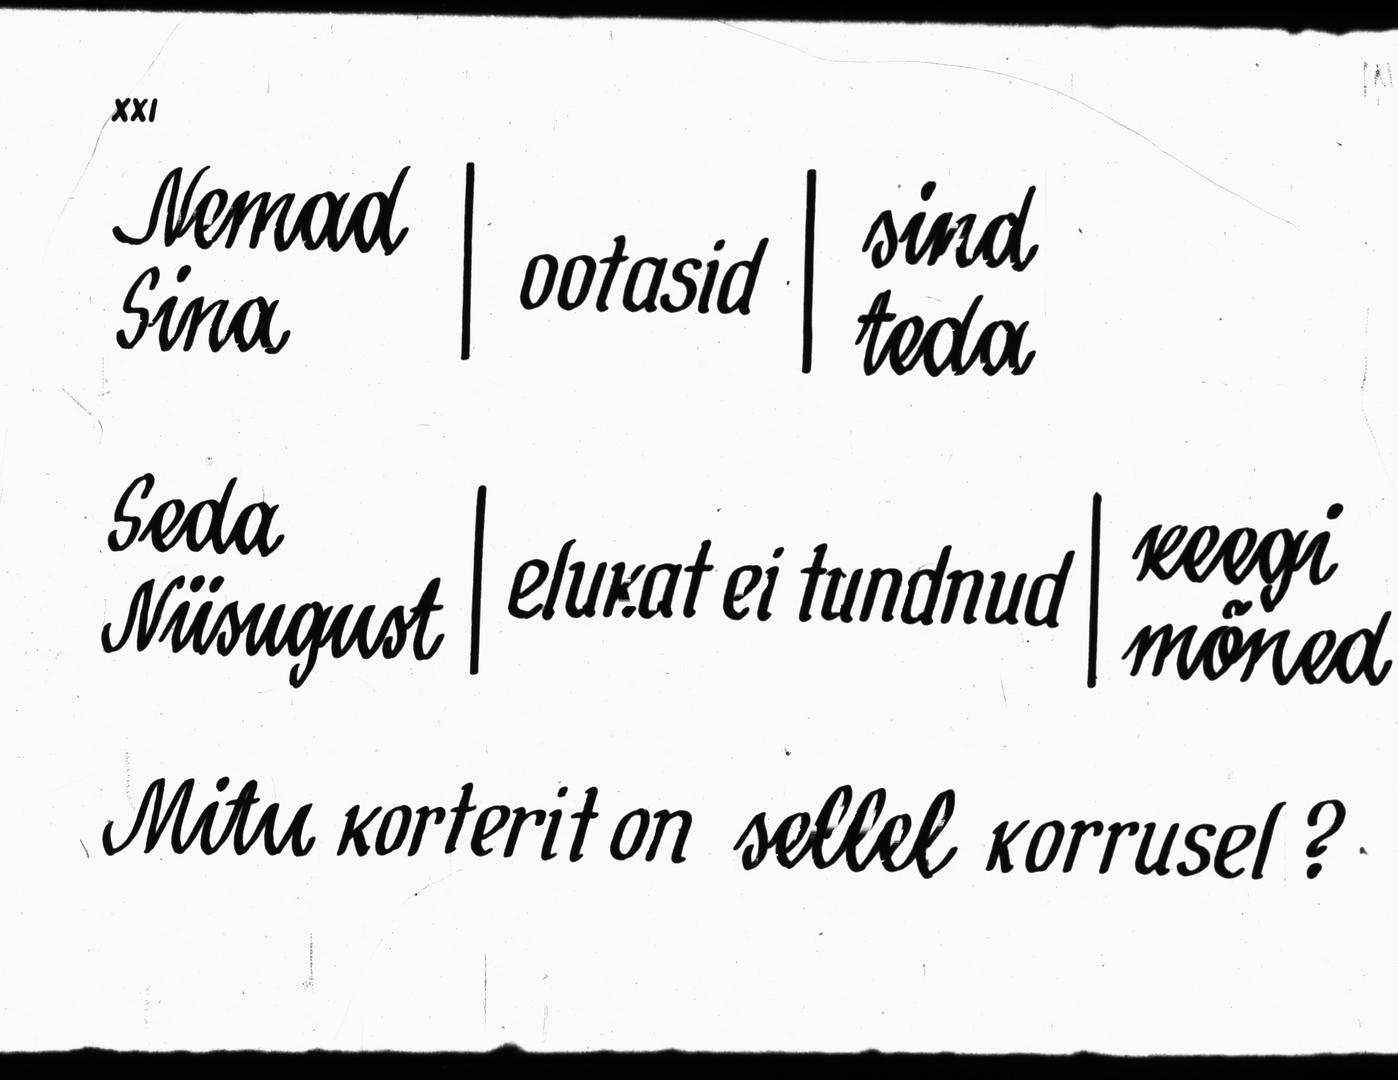 XXI
Nemad
Sina
ootasid
sind
teda
Seda
Niisugust
elukat ei tundnud
keegi
mõned
Mitu korterit on sellel korrusel?